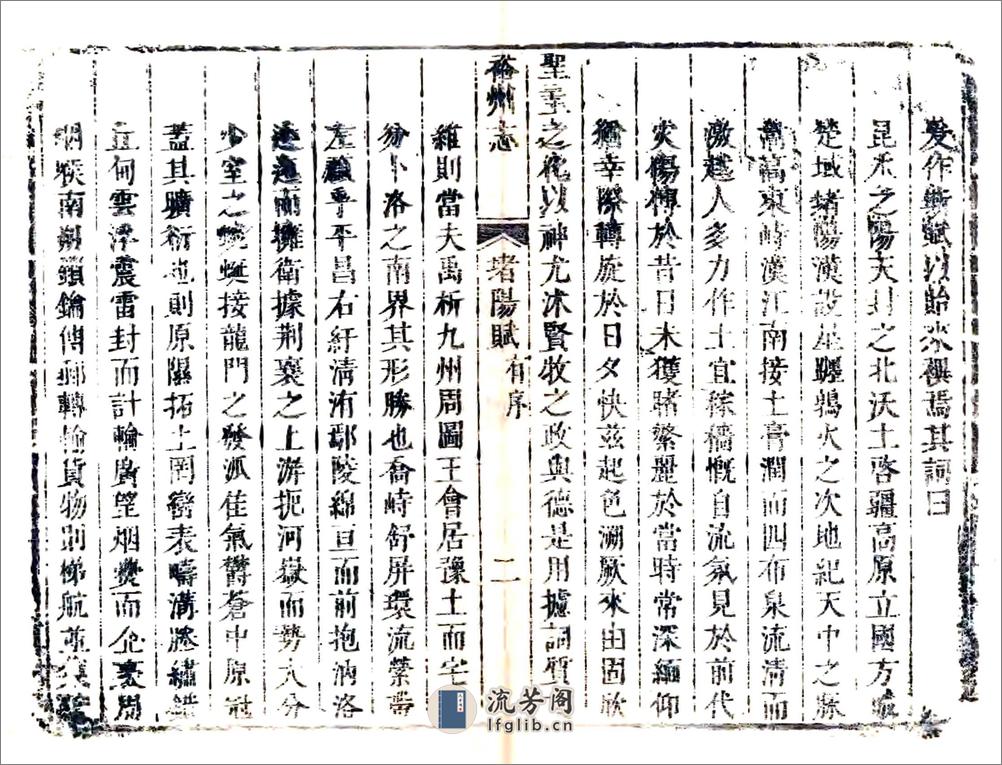 爰作斯賦以貽來禩焉其詞曰
昆禾之陽天封之北沃土啓疆高原立國方城
楚域堵陽漢設星躔鶉火之次地紀天中之脈
嵩高東峙漢江南接土膏潤而四布泉流清而
激越人多力作土宜稼穡慨自流氛見於前代
災傷傳於昔日未獲睹繁麗於當時常深緬仰
猶幸際轉旋於日夕快茲起色溯厥來由固欣
聖主之化以神尤沐賢牧之政與德是用攄詞質
裕州志 堵陽賦有序 二
維則當夫禹析九州周圖王會居豫土而宅
分卜洛之南界其形勝也喬峙舒屏環流縈帶
左乎平昌右紆清洧鄢陵綿亘而前抱汭洛
逶迤而擁衛據荆襄之上游扼河嶽而勢大分
少室之蜿蜒接龍門之發派佳氣鬱蒼中原冠
蓋其曠衍也則原隰拓土罔巒表疇溝塍繡錯
丘甸雲浮震雷封而計輪廣望烟爨而企周
候南朔鎖鑰傳郵轉輸貨物則梯航並
流芳阁
lfglib.cn